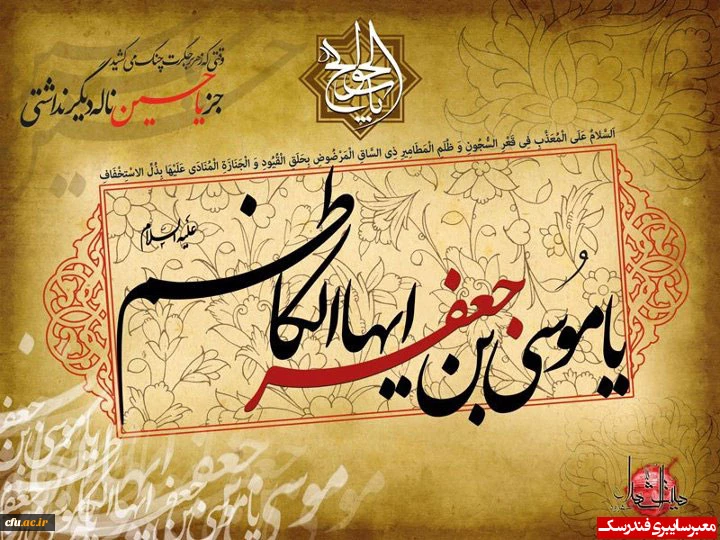 یا باب الحوائج
وقتی که زهر بر جگرت چنگ می کشید
جز یا حسین ناله دیگر نداشتی
اَلسَّلامُ عَلَی الْمُعَذَّبِ فی قَعْرِ السُّجُونِ وَ ظُلَمِ الْمَطامیرِ ذِی السّاقِ الْمَرْضُوضِ بِحَلَقِ الْقُیُودِ وَ الْجَنازَةِ الْمُنادی عَلَیْها بِذُلِّ الاسْتِخْفافِ
علیه السلام
یا مُوسَی بن جعفر ایها الکاظم
یا موسی بن جعفر ایها الکاظم
cfu.ac.ir
معبرسایبری فندرسک